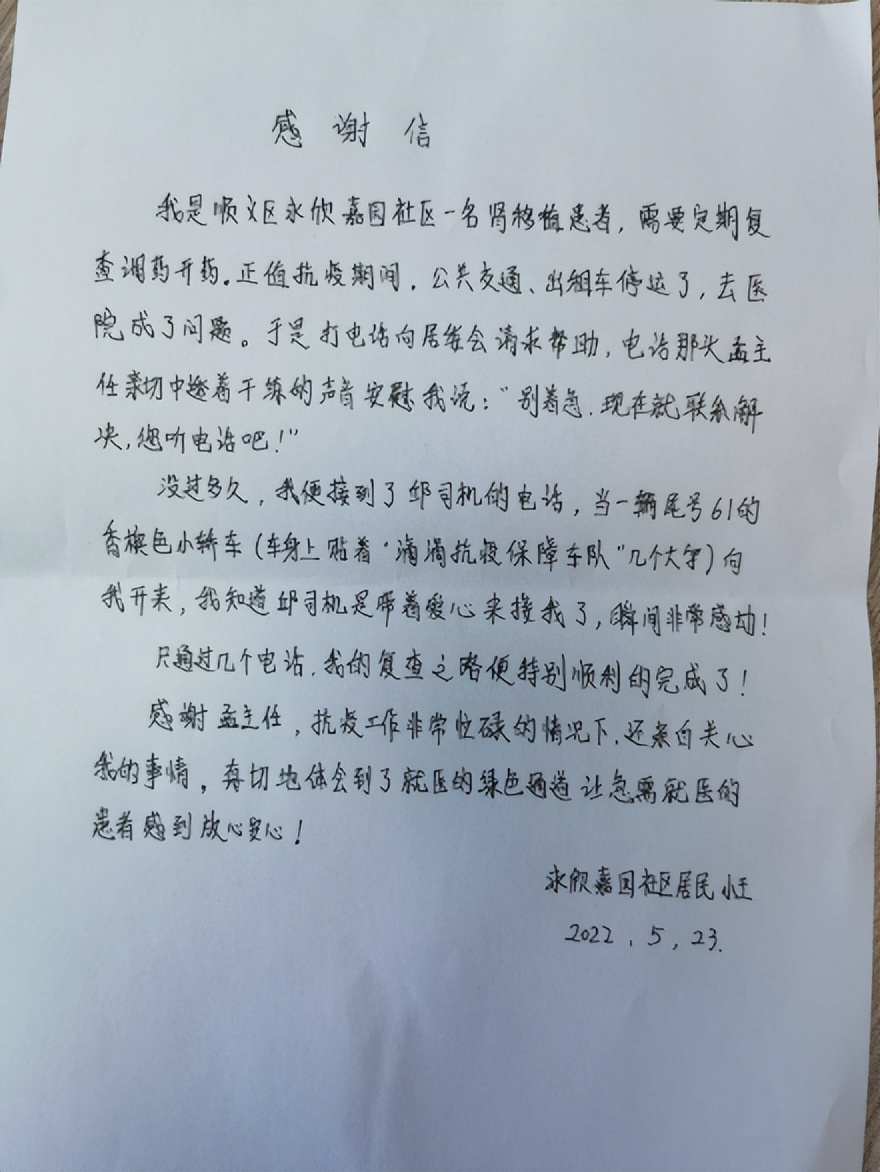 感谢信
我是顺义区永欣嘉园社区一名肾移植患者，需要定期复
查调药开药。正值抗疫期间，公共交通、出租车停运了，去医
院成了问题。于是打电话向居委会请求帮助，电话那头孟主
任亲切中透着干练的声音安慰我说：“别着急，现在就联系解
决，您听电话吧！”
没过多久，我便接到了邱司机的电话，当一辆尾号61的
香槟色小轿车（车身上贴着“滴滴抗疫保障车队”几个大字）向
我开来，我知道邱司机是带着爱心来接我了，瞬间非常感动！
只通过几个电话，我的复查之路便特别顺利的完成了！
感谢孟主任，抗疫工作非常忙碌的情况下，还亲自关心
我的事情，真切地体会到了就医的绿色通道让急需就医的
患者感到放心安心！
永欣嘉园社区居民 小王
2022，5，23.